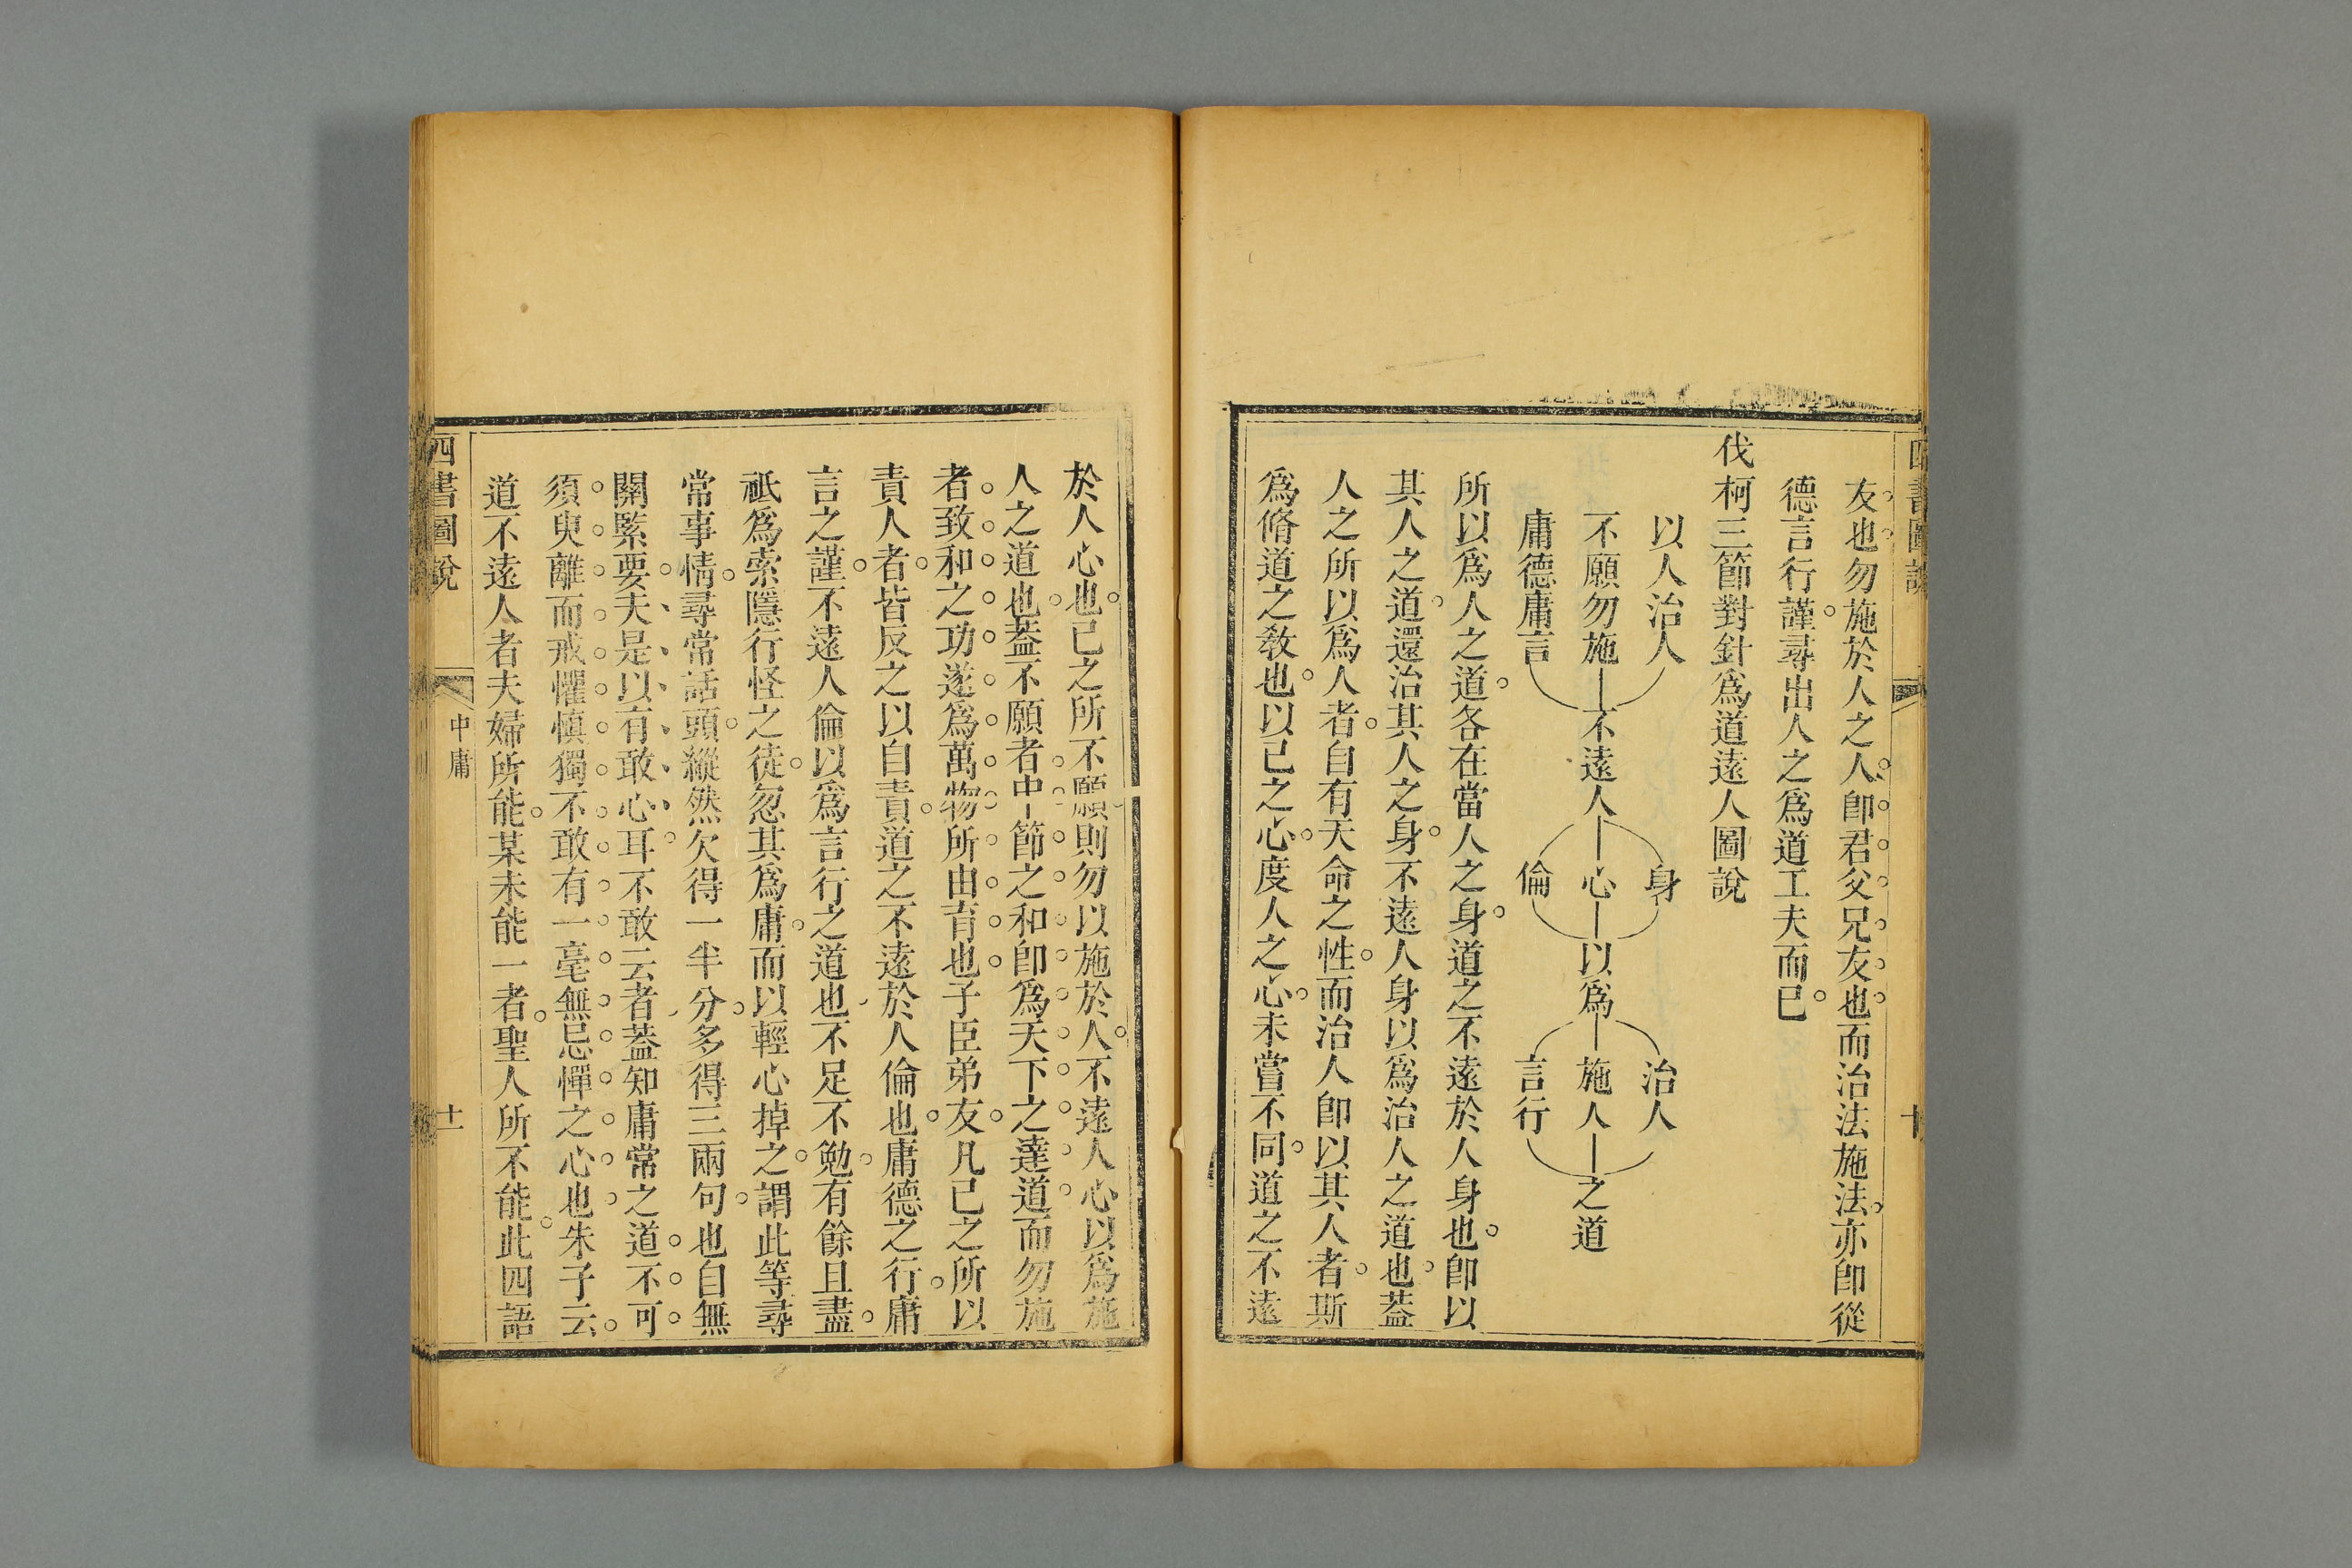 友也勿施於人之人卽君父兄友也而治法施法亦卽從
德言行謹尋出人之爲道工夫而已
伐柯三節對針爲道遠人圖說
以人治人
不願勿施
庸德庸言
不遠人
身
心
倫
以爲
治人
施人
言行
之道
所以爲人之道各在當人之身道之不遠於人身也卽以
其人之道還治其人之身不遠人身以爲治人之道也葢
人之所以爲人者自有天命之性而治人卽以其人者斯
爲脩道之敎也以己之心度人之心未嘗不同道之不遠
於人心也己之所不願則勿以施於人不遠人心以爲施
人之道也葢不願者中節之和卽爲天下之達道而勿施
者致和之功遂爲萬物所由育也子臣弟友凡己之所以
責人者皆反之以自責道之不遠於人倫也庸德之行庸
言之謹不遠人倫以爲言行之道也不足不勉有餘且盡
祇爲索隱行怪之徒忽其爲庸而以輕心掉之謂此等尋
常事情尋常話頭縱然欠得一半分多得三兩句也自無
關緊要夫是以有敢心耳不敢云者葢知庸常之道不可
須臾離而戒懼慎獨不敢有一毫無忌憚之心也朱子云
道不遠人者夫婦所能某未能一者聖人所不能此四語
四書圖說
中庸
十一